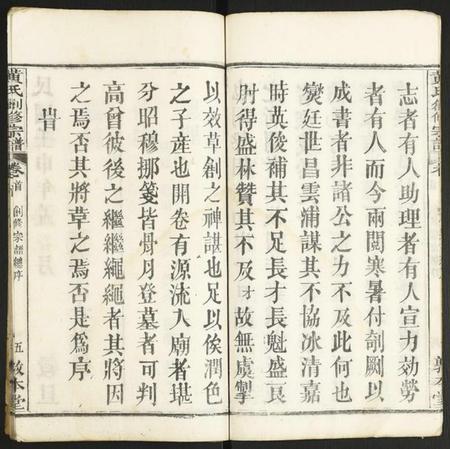 志者有人助理者有人宣力効勞
者有人而今兩閱寒暑付剞劂以
成書者非諸公之力不及此何也
爕廷世昌雲浦謀其不協冰清嘉
時英俊補其不足長才長魁盛良
肘得盛林贊其不及才故無虞掣
以效草創之神諶也足以俟潤色
之子產也開卷有源流入廟者堪
分昭穆挪箋皆骨月登墓者可判
高曾彼後之繼繼繩繩者其將因
之焉否其將草之焉否是為序
旹
黃氏創修宗譜 卷首 創修宗譜總序 五 敦本堂